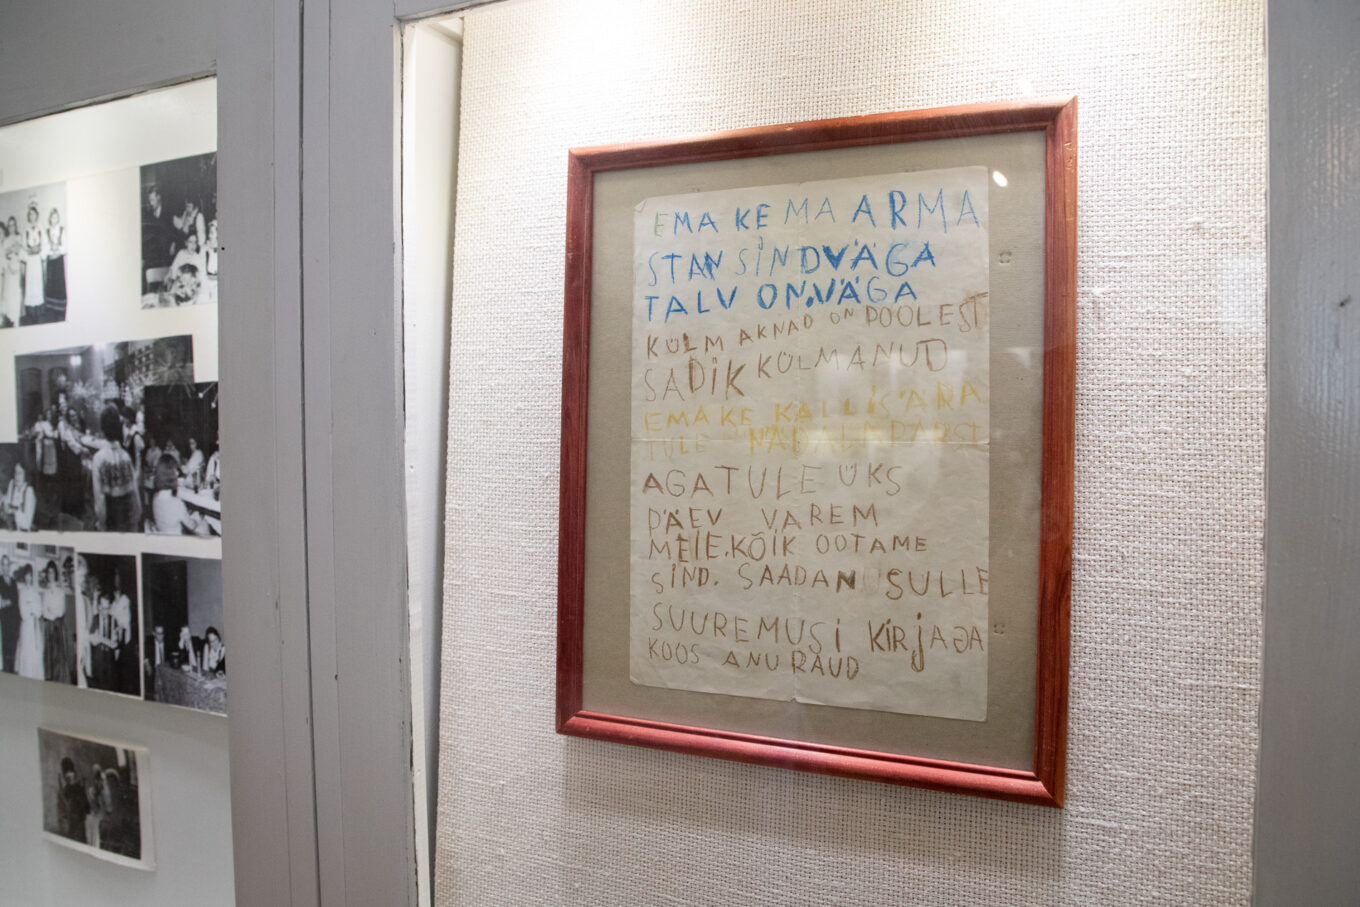 EMA KE MA ARMA
STAN SIND VÄGA
TALV ON. VÄGA
KÜLM AKNAD ON POOLEST
SADIK KÜLMANUD
EMAKE KALLIS ÄRA
TULE NÄDALAPÄRST
AGA TULE ÜKS
PÄEV VAREM
MEIE. KÕIK OOTAME
SIND. SAADAN SULLE
SUUREMUSI KIRJAGA
KOOS ANU RAUD